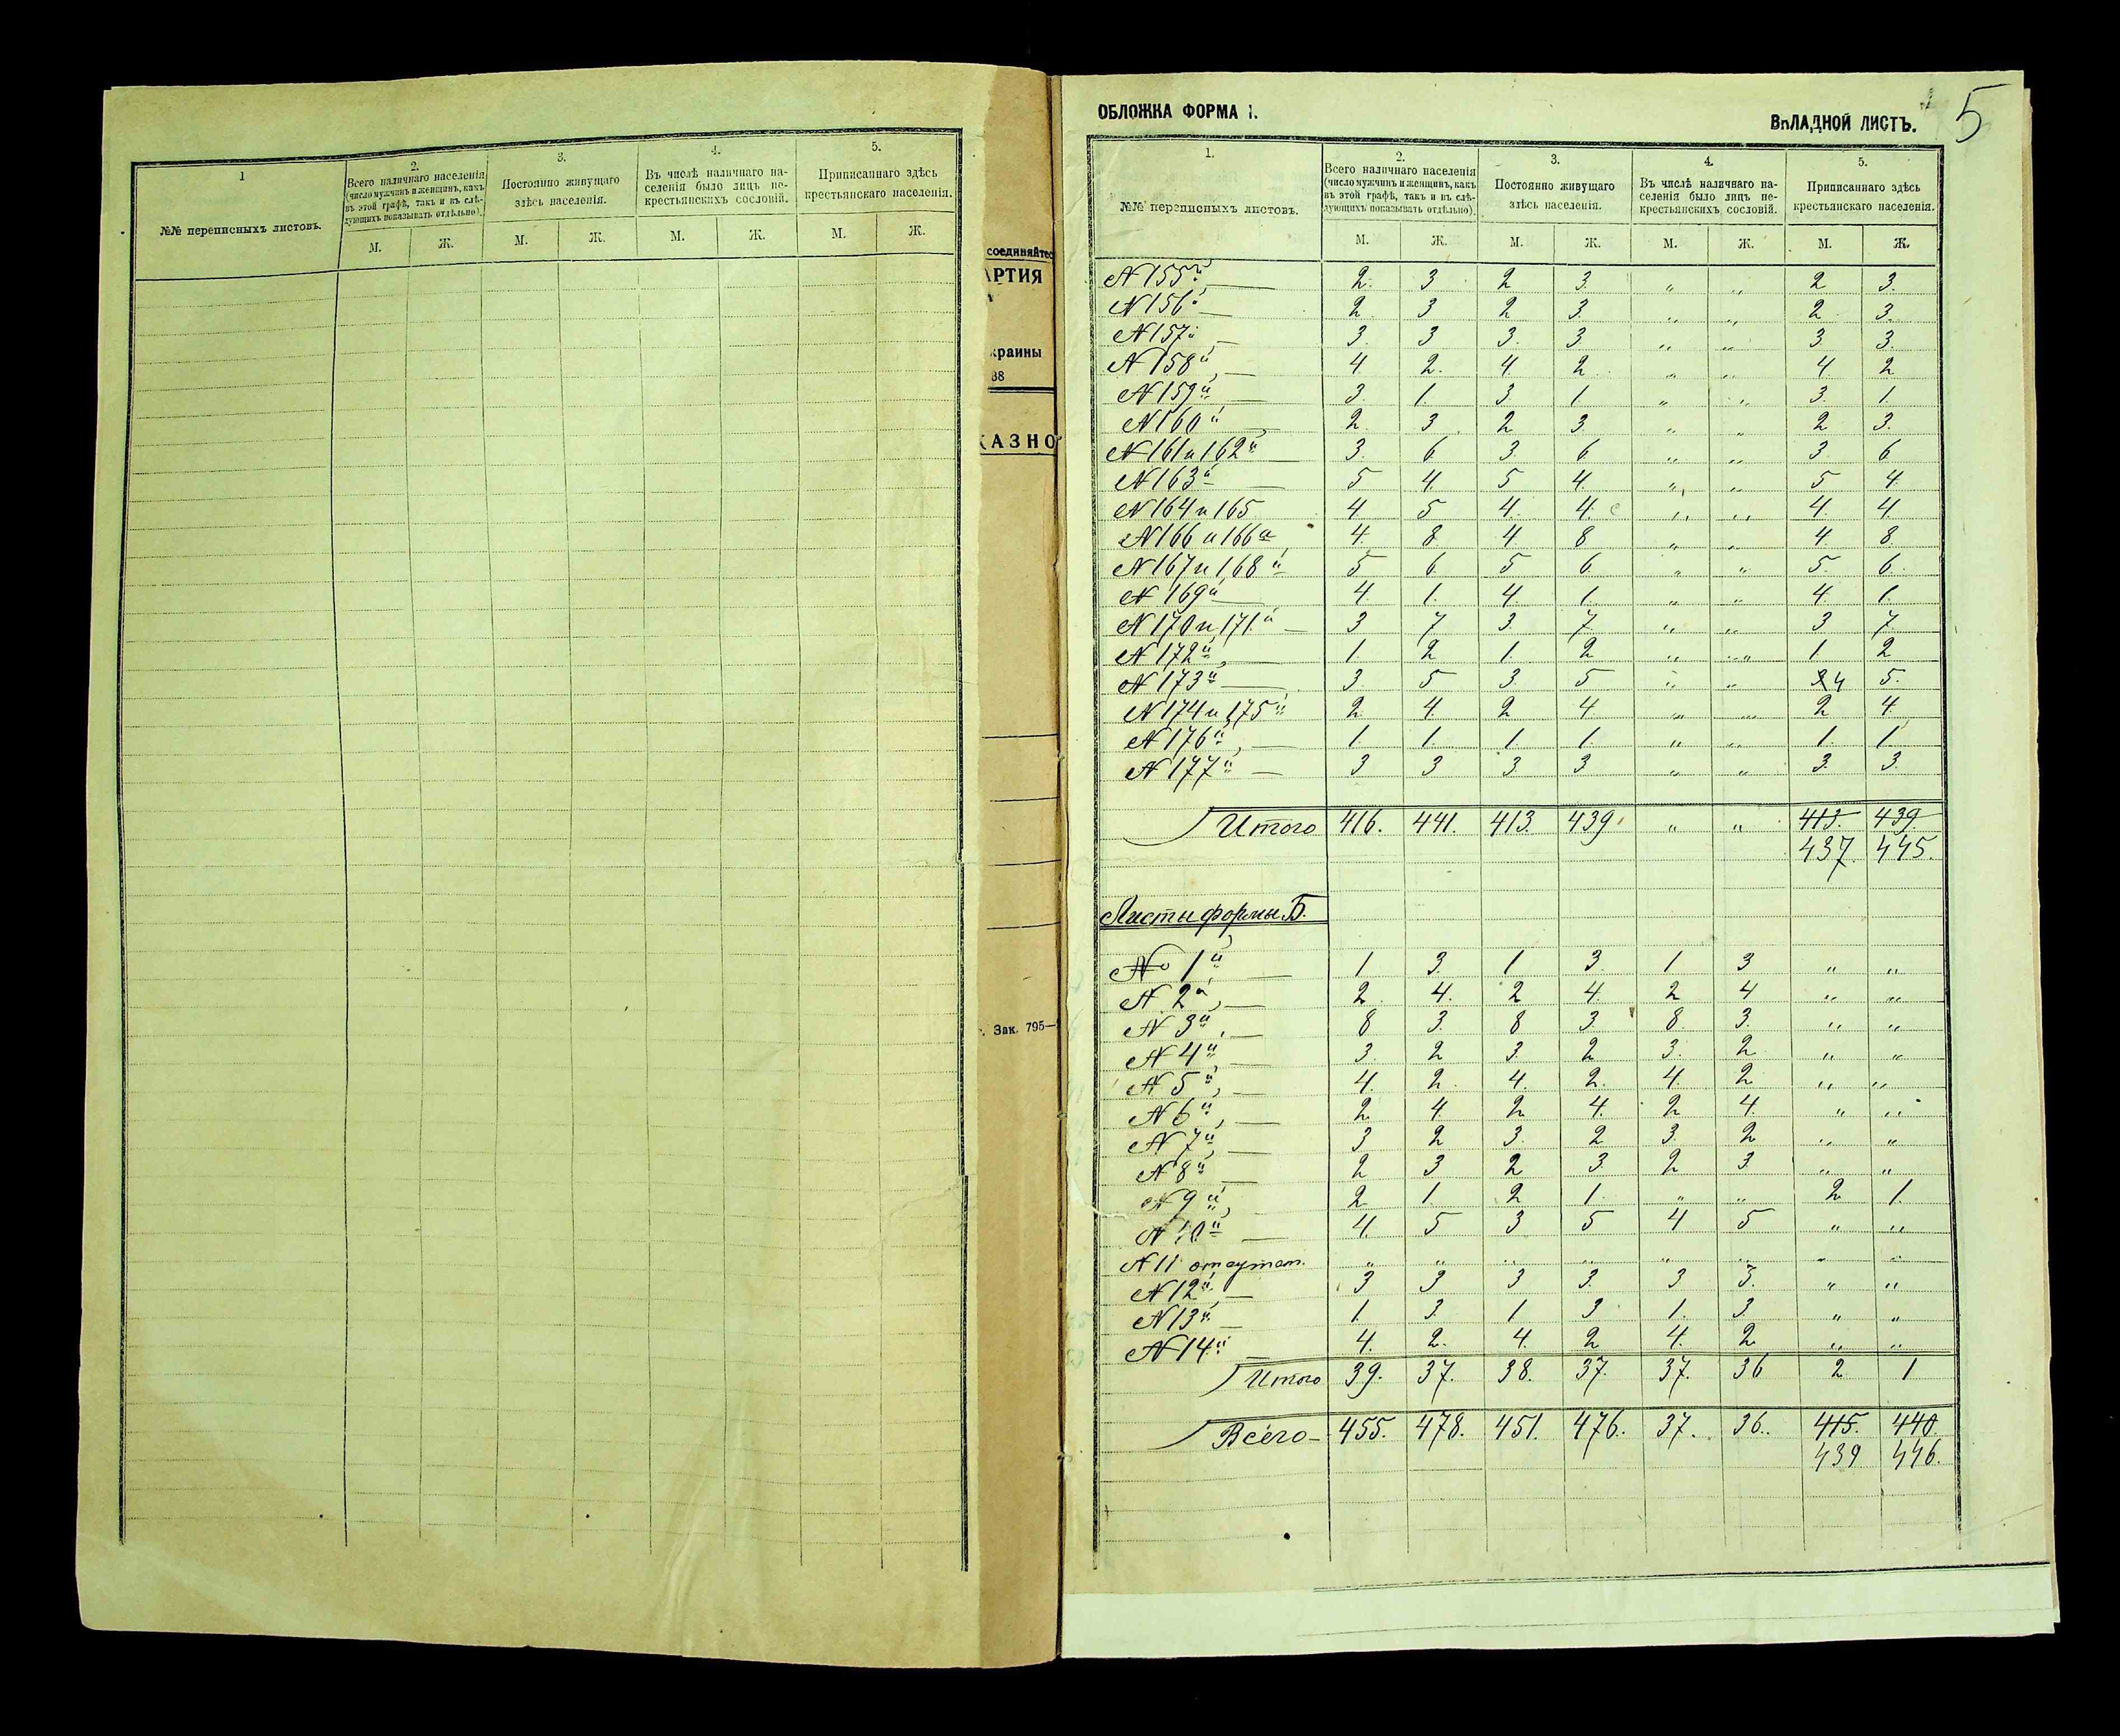 1
№№ переписныхъ листовъ.
2.
Всего наличнаго населенія
(число мужчинъ и женщинъ, какъ
въ этой графѣ, такъ и въ слѣ-
дующихъ показывать отдѣльно).
3.
Постоянно живущаго
здѣсь населенія.
4.
Въ числѣ наличнаго на-
селенія было лицъ не-
крестьянскихъ сословій.
5.
Приписаннаго здѣсь
крестьянскаго населенія.
М. Ж. М. Ж. М. Ж. М. Ж.
соединяйтесь
АРТИЯ
краины
38
КАЗНО
Зак. 795—
ОБЛОЖКА ФОРМА 1.
ВКЛАДНОЙ ЛИСТЪ.
5
1.
№№ переписныхъ листовъ.
2.
Всего наличнаго населенія
(число мужчинъ и женщинъ, какъ
въ этой графѣ, такъ и въ слѣ-
дующихъ показывать отдѣльно).
3.
Постоянно живущаго
здѣсь населенія.
4.
Въ числѣ наличнаго на-
селенія было лицъ не-
крестьянскихъ сословій.
5.
Приписаннаго здѣсь
крестьянскаго населенія.
М. Ж. М. Ж. М. Ж. М. Ж.
N 155й 2. 3 2 3. " " 2 3.
N 156й 2 3 2 3. " " 2 3.
N 157й 3. 3 3. 3 " " 3 3.
N 158й 4 2. 4. 2 " " 4. 2
N 159й 3. 1. 3. 1 " " 3. 1.
N 160й 2. 3 2 3. " " 2 3.
N 161 и 162й 3. 6. 3. 6. " " 3. 6
N 163й 5 4. 5 4. " " 5 4.
N 164 и 165 4 5 4. 4. " " 4. 4.
N 166 и 166а 4. 8. 4 8 " " 4. 8.
N 167 и 168й 5 6. 5 6. " " 5. 6.
N 169й 4. 1. 4. 1. " " 4. 1.
N 170 и 171й 3 7 3. 7. " " 3 7.
N 172й 1. 2 1. 2 " " 1 2
N 173й 3. 5 3. 5 " " 4 5.
N 174 и 175й 2. 4. 2 4. " " 2 4.
N 176й 1. 1. 1. 1. " " 1. 1.
N 177й 3 3 3. 3 " " 3. 3.
Итого 416. 441. 413. 439. " " 413. 439.
437. 445.
Листы формы Б.
№ 1й 1 3. 1 3. 1 3 " "
N 2й 2. 4. 2 4. 2 4 " "
N 3й 8 3. 8 3. 8. 3. " "
N 4й 3. 2 3. 2 3. 2 " "
N 5й 4. 2. 4. 2. 4. 2 " "
N 6й 2. 4 2 4. 2 4. " "
N 7й 3 2 3. 2 3. 2 " "
N 8й 2 3 2 3. 2 3. " "
N 9й 2 1 2 1. " " 2 1.
N 10й 4. 5 3 5 4 5 " "
N 11 отсутст. " " " " " " " "
N 12й 3 3 3 3. 3 3. " "
N 13й 1. 3 1 3 1. 3 " "
N 14й 4. 2. 4. 2 4. 2 " "
Итого 39. 37. 38. 37. 37. 36 2 1
Всего 455. 478. 451. 476. 37. 36. 415. 440.
439 446.